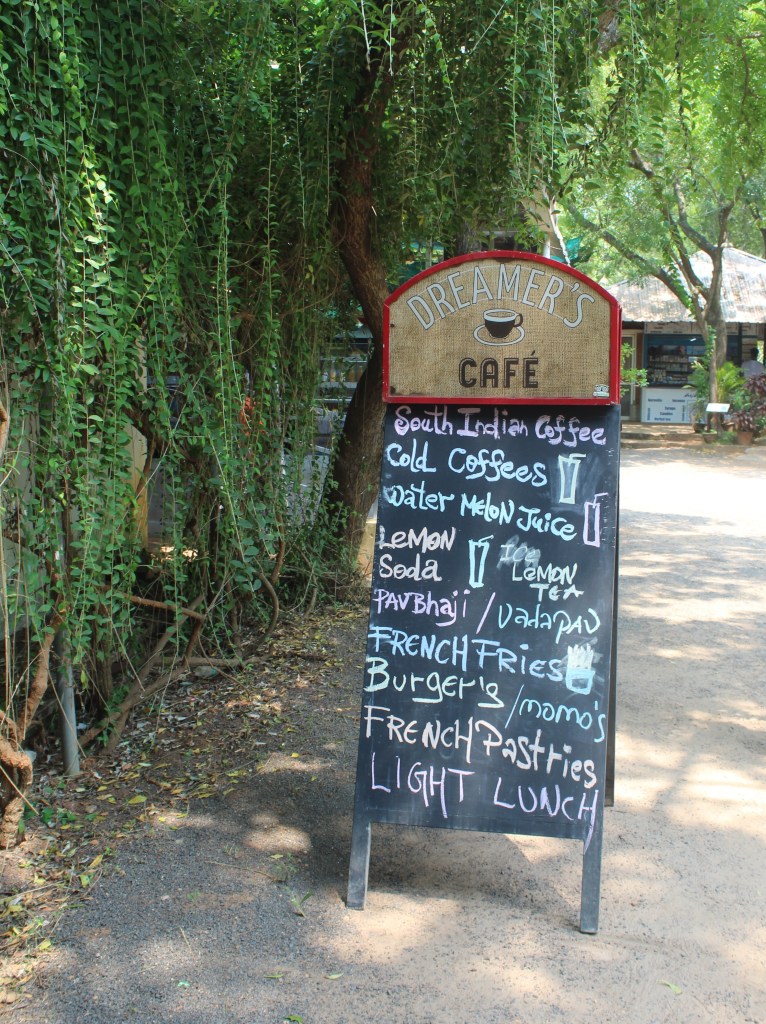 DREAMER'S
CAFÉ
South Indian Coffee
Cold Coffees
Water Melon Juice
LeMON Soda
Ice LeMON TEA
PAVBhaji / VadaPAV
FRENCH FRies
Burger's / momo's
FRENCH Pastries
LIGHT LUNCH